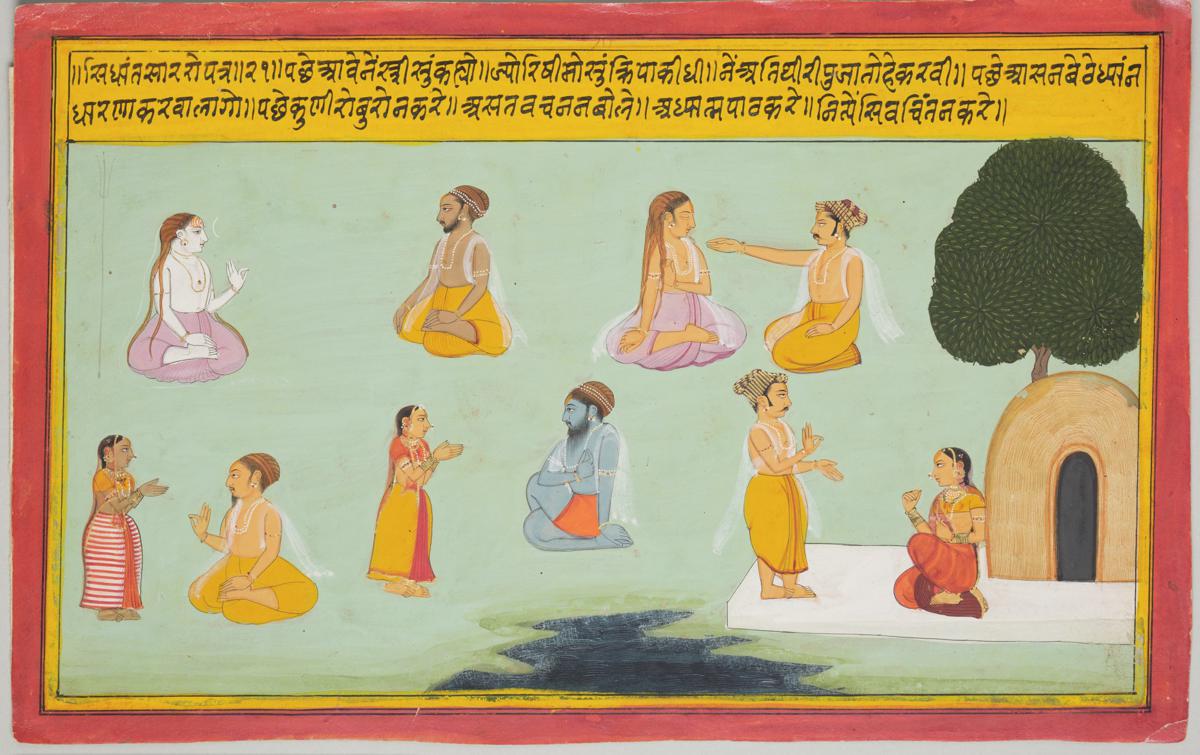 ॥सिध्धंतसाररोपत्र॥२१॥पछेआवेनेंस्त्रीसुंकह्यो॥ज्योरिषीमोसुंक्रिपाकीधी॥नेंअतिथीरीपुजातोहेकरवी॥पछेआसनबेठेध्यांन
धारणाकरवालागो॥पछेकुणीरोबुरोनकरे॥असतवचननबोले॥अध्यात्मपाठकरे॥नित्येंसिवचिंतनकरे॥